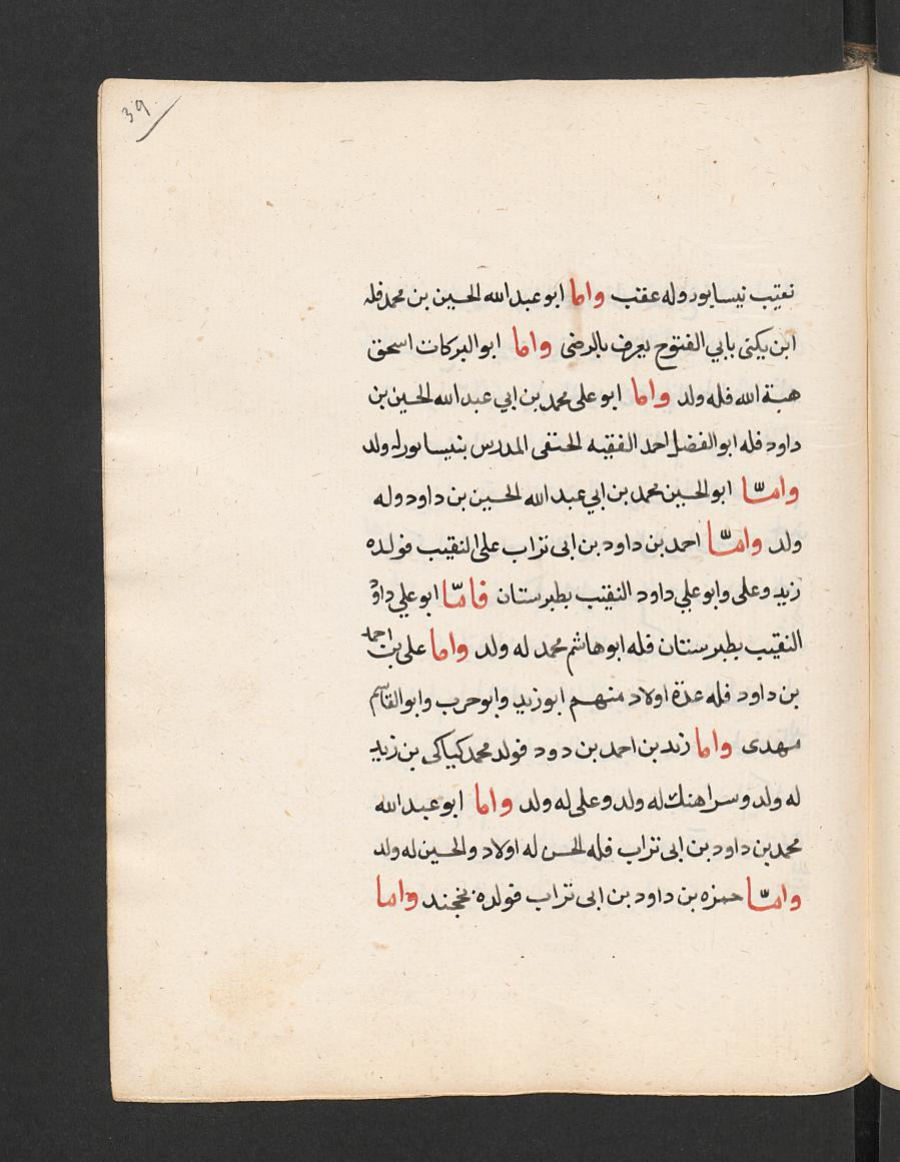 39
نعتيب نيسابور وله عقب واما ابو عبد الله الحسين بن محمد فله
ابن يكنى بابي الفتوح يعرف بالرضى واما ابو البركات اسحق
هبة الله فله ولد واما ابو على محمد بن ابي عبد الله الحسين بن
داود فله ابو الفضل احمد الفقيه الحنفى المدرس بنيسابور له ولد
وامّا ابو الحسين محمد بن ابي عبد الله الحسين بن داود وله
ولد وامّا احمد بن داود بن ابى تراب على النقيب فولده
زيد وعلى وابو علي داود النقيب بطبرستان فامّا ابو علي داود
النقيب بطبرستان فله ابو هاشم محمد له ولد واما على بن احمد
بن داود فله عدة اولاد منهم ابو زيد وابو حرب وابو القاسم
مهدى واما زيد بن احمد بن دود فولد محمد كياكى بن زيد
له ولد وسراهنك له ولد وعلى له ولد واما ابو عبد الله
محمد بن داود بن ابى تراب فله الحسن له اولاد والحسين له ولد
وامّا حمزه بن داود بن ابى تراب فولده بخجند واما